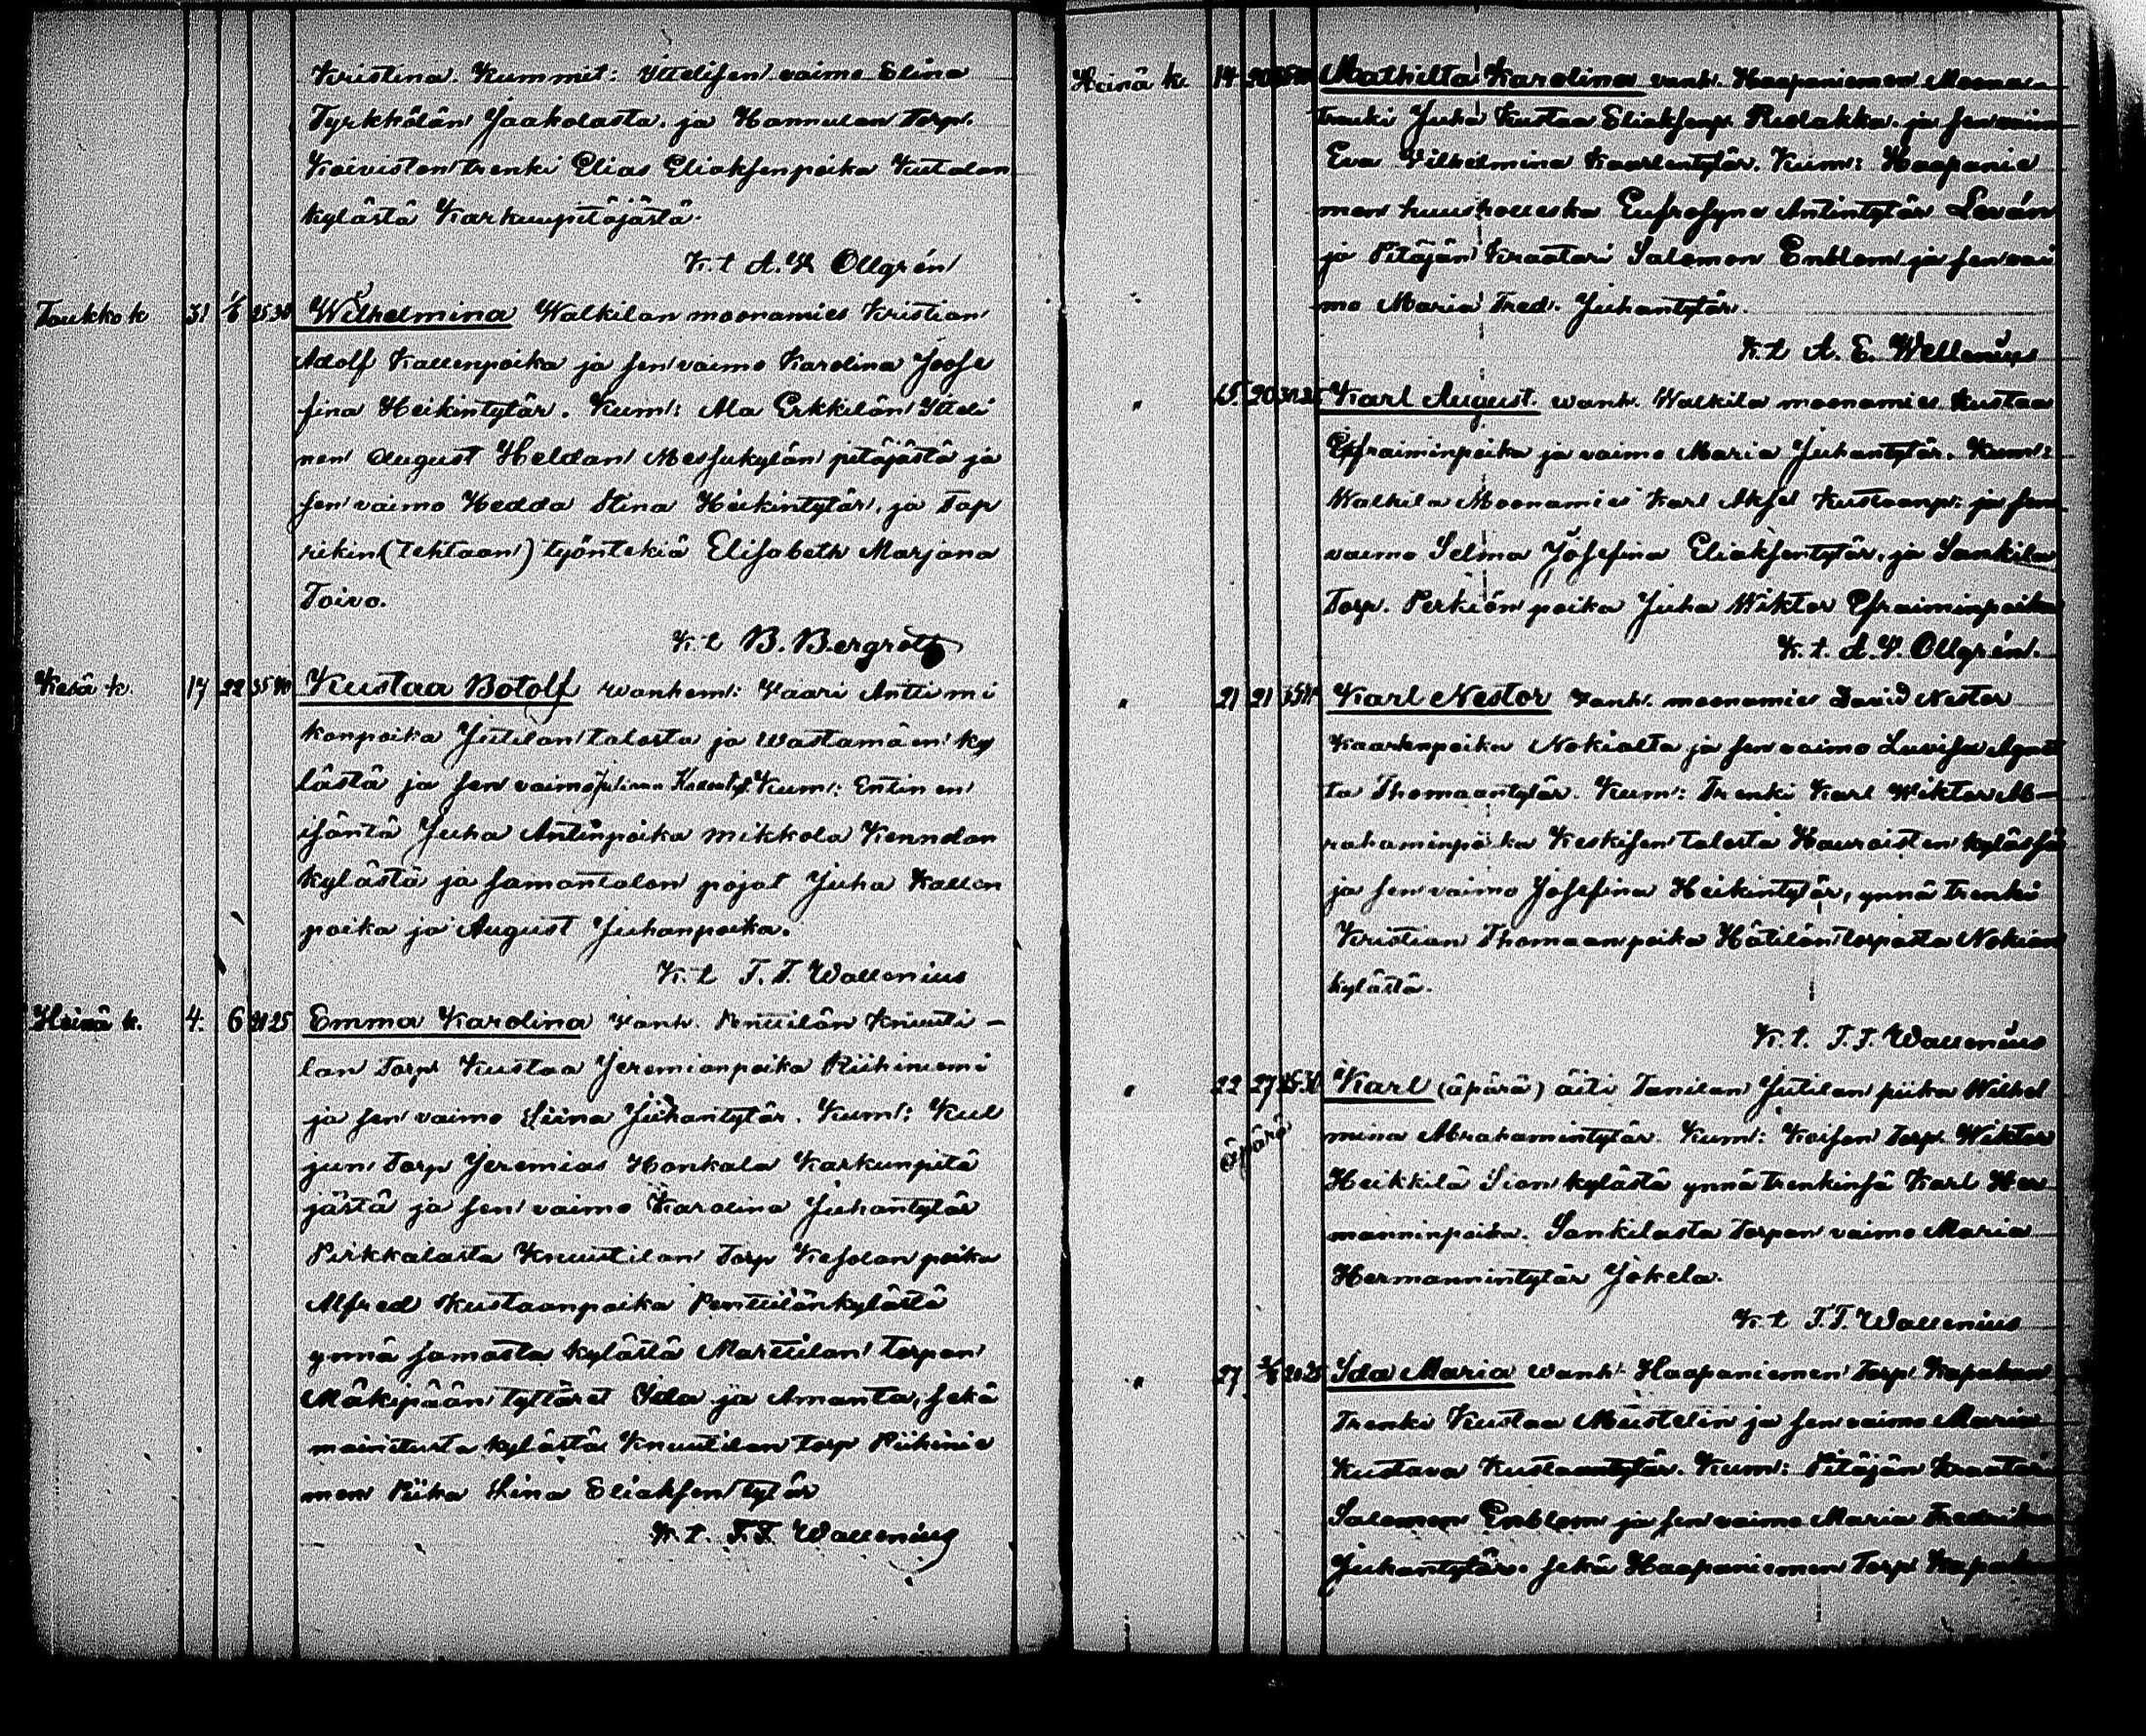 Kristina. Kummit: Ittelisen vaimo Elina
Tyrkkölän Jaakolasta. ja Hannulan Torp.
Koiviston trenki Elias Eliaksenpoika Kutalan
kylästä Karkunpitäjästä.
K. t A. W Ollgrén
Toukko k 31 1/6 25.30 Wilhelmina Walkilan moonamies Kristian
Adolf Kallenpoika ja sen vaimo Karolina Joose
fina Heikintytär. Kum: Ala Erkkilän Itteli
nen August Heldan Messukylän pitäjästä ja
sen vaimo Hedda Stina Heikintytär, ja Fap
rikin (tehtaan) työntekiä Elisabeth Marjana
Toivo.
K. t B. Bergroth
Kesä k. 17 22 35 40 Kustaa Botolf wanhem: Vaari Antti Mi
konpoika Jutilan talosta ja Wastamäen ky
lästä ja sen vaimo Juliana Kum: Entinen
isäntä Juha Antinpoika Mikkola Kenndan
kylästä ja saman talon pojat Juha Kallen
poika ja August Juhanpoika.
K. t F. F. Wallenius
Heinä k. 4. 6 20 25 Emma Karolina Vanh. Penttilän Knuuti-
lan Torp Kustaa Jeremianpoika Riihiniemi
ja sen vaimo Liina Juhantytär. Kum: Kul
jun Torp Jeremias Honkala Karkunpitä
jästä ja sen vaimo Karolina Juhantytär
Pirkkalasta Knuutilan Torp Kesolan poika
Alfred Kustaanpoika Penttilänkylästä
ynnä samasta kylästä Marttilan torpan
Mäkipään tyttäret Ida ja Amanta, sekä
mainitusta kylästä Knuutilan torp Riihinie
men Piika Liina Eliaksentytär
K. t. F. F. Wallenius
Heinä k. 14 20 Mathilta Karolina vanh. Haapaniemen Moona-
trenki Juha Kustaa Eliaksenp. Redakka. ja sen vaimo
Eva Vilhelmina Kaarlentytär. Kum: Haapanie
men huusholleska Eufrosyne Antintytär Levón
ja Pitäjän Kraatari Salomon Enblom ja sen vai
mo Maria Fred. Juhantytär.
K. t A. E. Wellenius
" 15 20 30.35 Karl August. wanh. Walkila moonamies Kustaa
Efraiminpoika ja vaimo Maria Juhantytär. Kum:
Walkila Moonamies Karl Aksel Kustaanp: ja sen
vaimo Selma Josefina Eliaksentytär, ja Sankila
Torp. Perkiön poika Juha Wiktor Efraiminpoika
K. t. A. W. Ollgrén.
" 21 21 35 40 Karl Nestor Vanh. moonamies David Nestor
Kaarlenpoika Nokialta ja sen vaimo Luvisa Agat
ta Thomaantytär. Kum: Trenki Karl Wiktor Ab-
rahaminpoika Keskisen talosta Hauroisten kylässä
ja sen vaimo Josefina Heikintytär, ynnä trenki
Kristian Thomaanpoika Hätilän torpasta Nokian
kylästä.
K. t. F. F. Wallenius
" 22 27 25.30 Karl (äpärä) äiti Tanilan Jutilan piika Wilhel
äpärä mina Abrahamintytär. Kum: Koisen Torp. Wiktor
Heikkilä Sion kylästä ynnä trenkinsä Karl Her
manninpoika. Sankilasta torpan vaimo Maria
Hermannintytär Jokela.
K. t F. F. Wallenius
" 27 20.25 Ida Maria wanh. Haapaniemen Torp Kapakan
Trenki Kustaa Mustelin ja sen vaimo Maria
Kustava Kustaantytär. Kum: Pitäjän Kraatari
Salomon Enblom ja sen vaimo Maria Fredrika
Juhantytär. sekä Haapaniemen Torp Kapakan